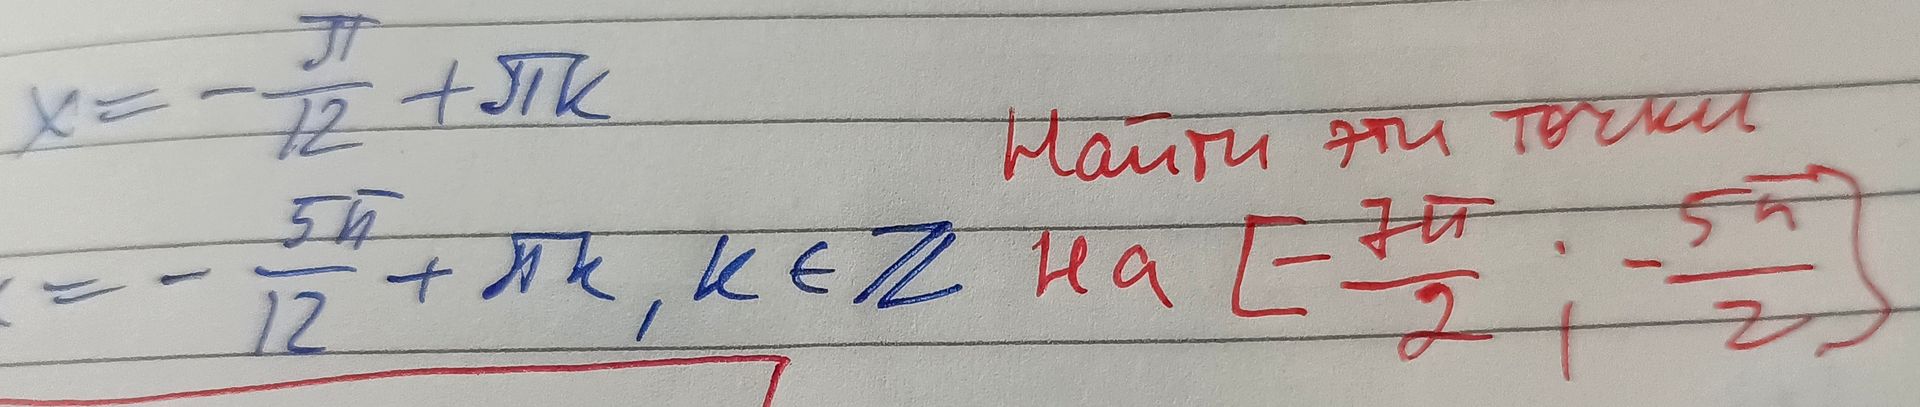 x = -π/12 + πk
Найти эти точки
x = -5π/12 + πk, k ∈ ℤ на [-7π/2; -5π/2)